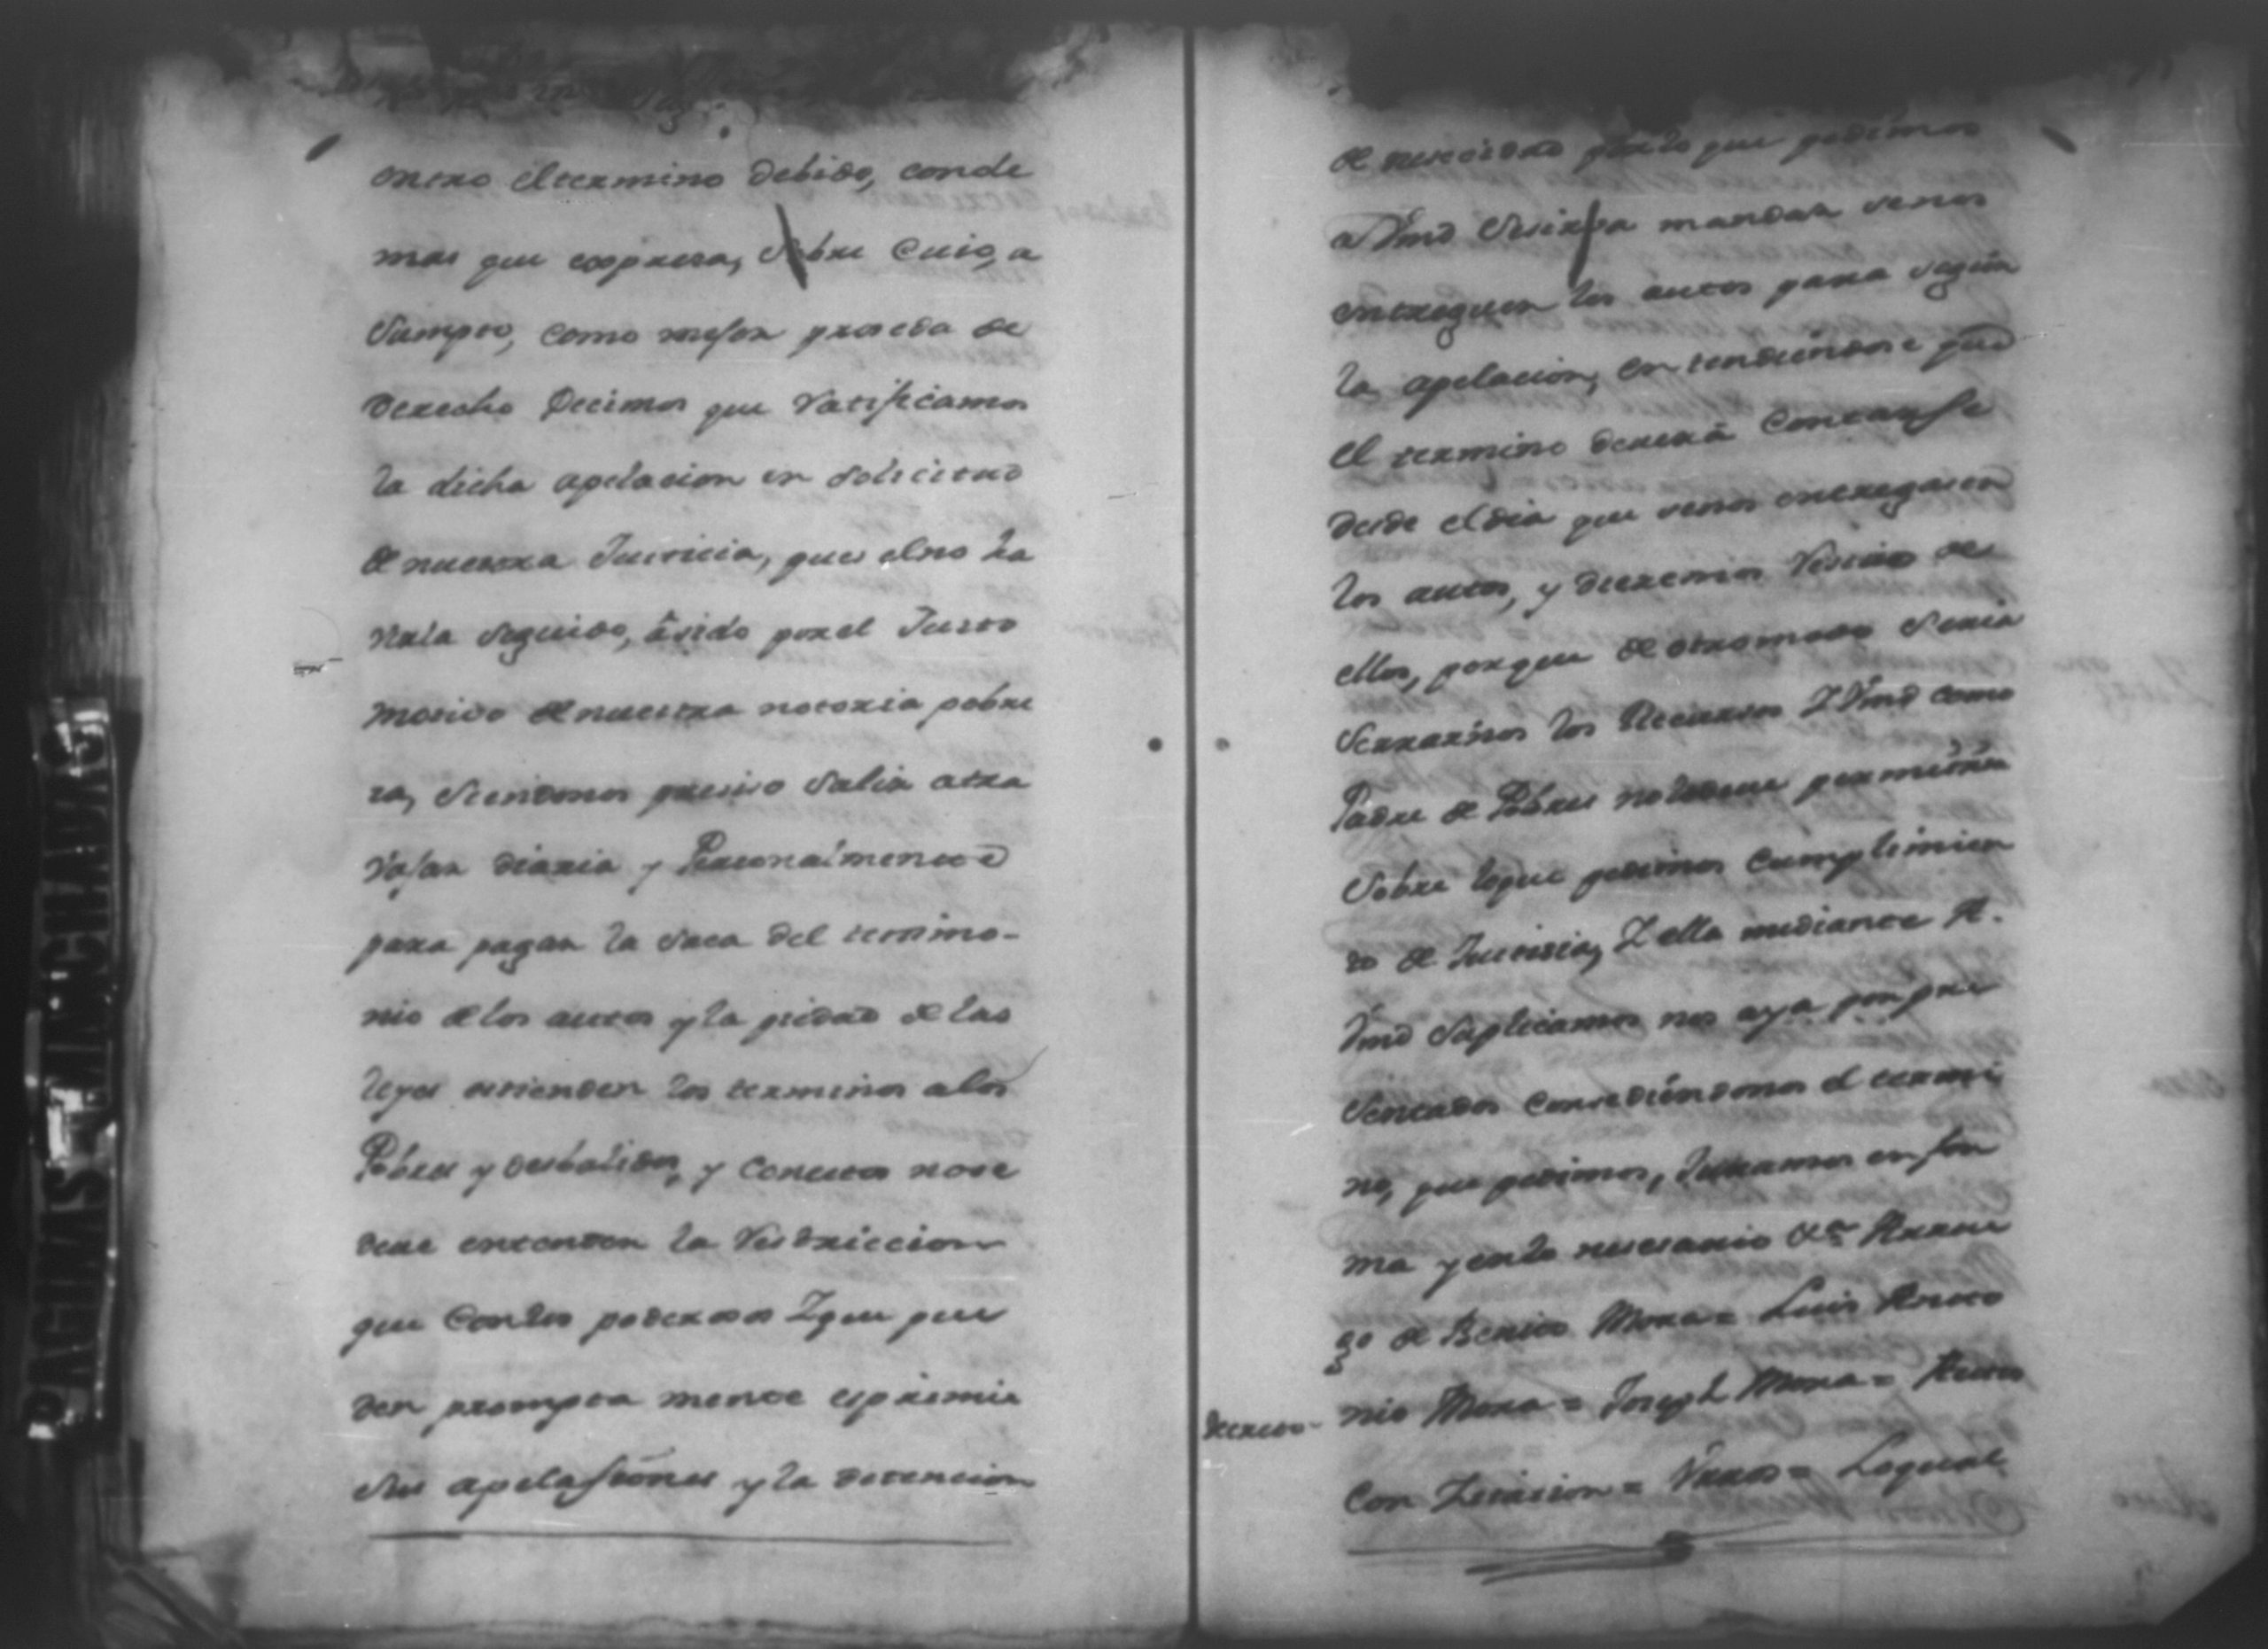 entro eltermino debido, conde
mas que expresa, Sobre Cuio, a
Sumpto, como mejor proseda de
derecho Decimos que Ratificamos
la dicha apelacion en Solicitud
de nuestra Justicia, que elno ha
verla Seguido, ásido porel Justo
motivo de nuestra notoria pobre
za, Siendonos presiso Salir atra
vajar diaria y Personalmente
para pagar la Saca del testimo-
nio de los autos y la piedad de las
leyes estienden los terminos alos
Pobres y desbalidos, y conestos nose
deve entender la Restriccion
que Conlos poderosos Y que pue
den prompta mente esprimir
Sus apelasiónes y la detencion
de nescesidad porlo que pedimos
a Vmd Sesirva mandar senos
entreguen los autos para seguir
la apelacion, entendiéndose que
el termino deverá Contarse
desde eldia que senos entregasen
los autos, y dieremos Resivo de
ellos, porque de otromodo Seria
Serrarnos los Recursos Y Vmd como
Padre de Pobres nolodeve permitir
Sobre loque pedimos Cumplimien
to de Justicia, Y ella mediante A.
Vmd Suplicamos nos aya por pre
sentados Consediéndonos el termi
no, que pedimos, Juramos enfor
ma yenlo nescesario &a Arrue
go de Benito Mora = Luis Anto
nio Mora = Joseph Mora = Autos
decreto-
Con Zitasion = Vistos = Loqual
PAGINAS MANCHADAS